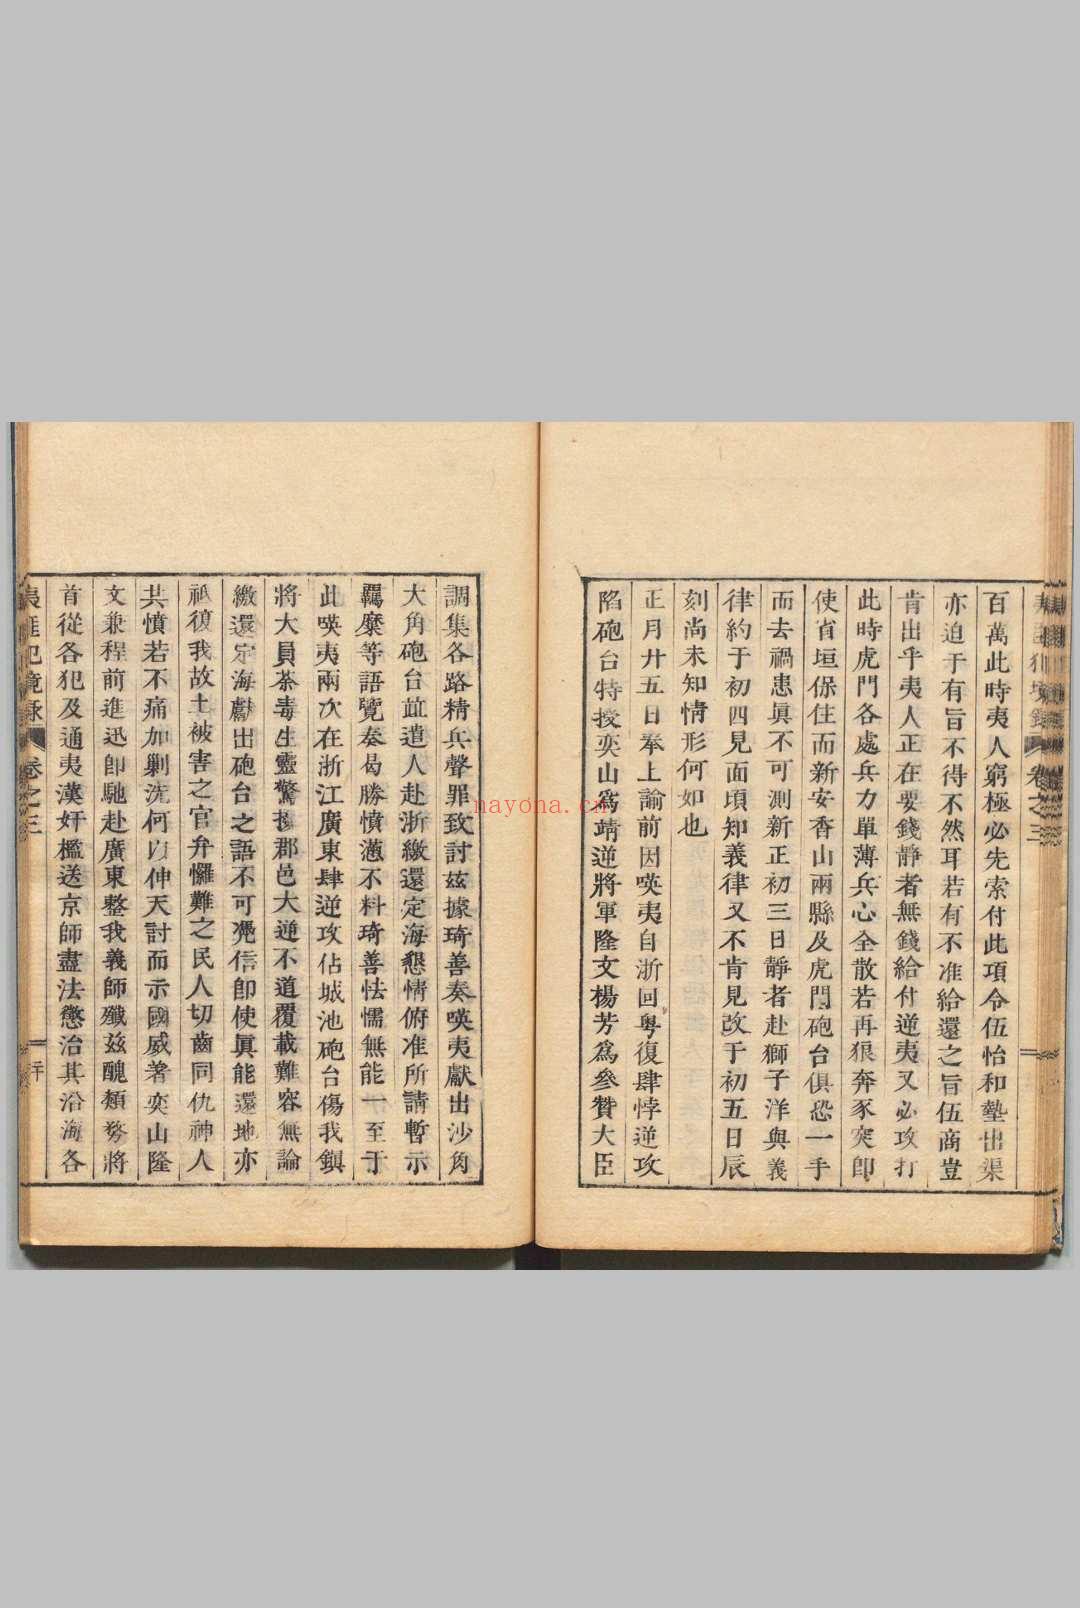 百萬此時夷人窮極必先索付此項令伍怡和墊出渠
亦迫于有旨不得不然耳若有不准給還之旨伍商豈
肯出乎夷人正在要錢靜者無錢給付逆夷又必攻打
此時虎門各處兵力單薄兵心全散若再狼奔豕突卽
使省垣保住而新安香山兩縣及虎門砲台俱恐一手
而去禍患眞不可測新正初三日靜者赴獅子洋與義
律約于初四見面頃知義律又不肯見改于初五日辰
刻尚未知情形何如也
正月廿五日奉上諭前因𠸄夷自浙回粵復肆悖逆攻
陷砲台特授奕山爲靖逆將軍隆文楊芳爲參贊大臣
調集各路精兵聲罪致討玆據琦善奏𠸄夷獻出沙角
大角砲台並遣人赴浙繳還定海懇情俯准所請暫示
羈縻等語覽奏曷勝憤懣不料琦善怯懦無能一至于
此𠸄夷兩次在浙江廣東肆逆攻佔城池砲台傷我鎭
將大員荼毒生靈驚擾郡邑大逆不道覆載難容無論
繳還定海獻出砲台之語不可凴信卽使眞能還地亦
祇復我故土被害之官弁罹難之民人切齒同仇神人
共憤若不痛加剿洗何以伸天討而示國威著奕山隆
文兼程前進迅卽馳赴廣東整我義師殲玆醜類務將
首從各犯及通夷漢奸檻送京師盡法懲治其沿海各
犯境錄 卷之三 二十
nayona.cn